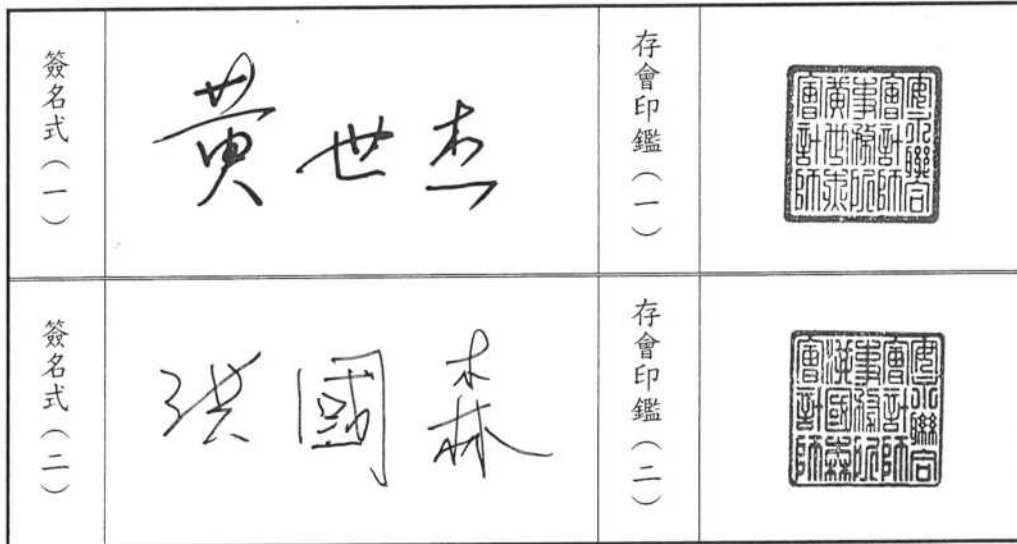 簽名式（一）
黃世杰
存會印鑑（一）
安永聯合
會計師
事務所
黃世杰
會計師
簽名式（二）
洪國森
存會印鑑（二）
安永聯合
會計師
事務所
洪國森
會計師